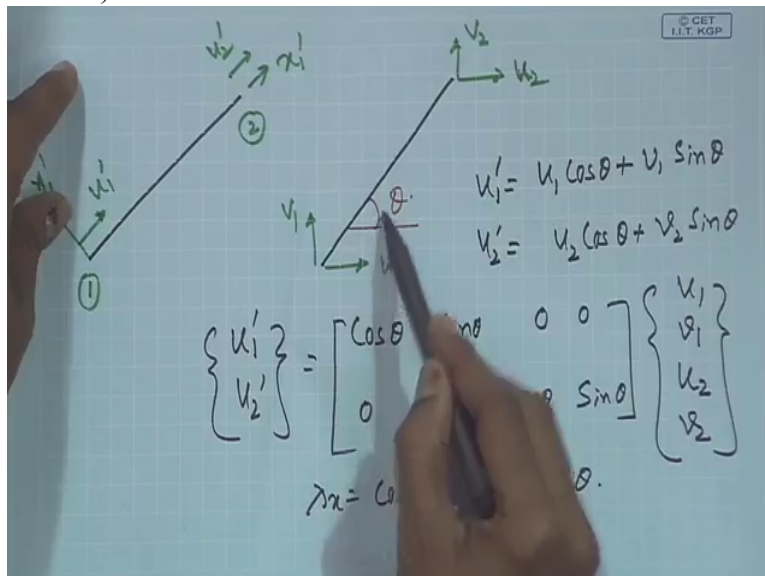 © CET
I.I.T. KGP
u₂'
x₁'
V₂
u₂
②
u₁'
①
V₁
θ.
u₁' = u₁ Cosθ + v₁ Sinθ
u₂' = u₂ Cosθ + v₂ Sinθ
{u₁' u₂'} = [Cosθ 0 0
0 Sinθ] {u₁ v₁ u₂ v₂}
λx =
θ.